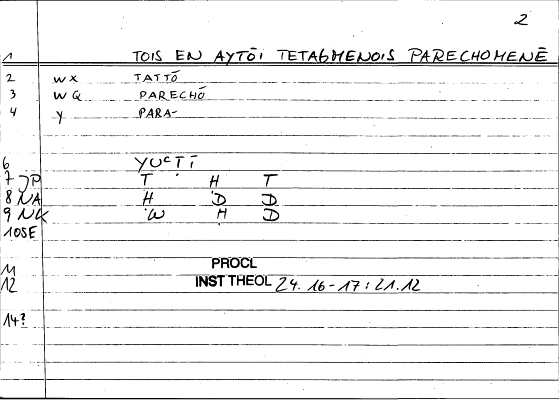 2
1 TOIS EN AYTŌI TETAGMENOIS PARECHOMENĒ
2 WX TATTŌ
3 WQ PARECHŌ
4 Y PARA-
6
7 JP T H T
8 NA H D D
9 NK W H D
10SE
11 PROCL
12 INST THEOL 24.16-17:21.12
14?